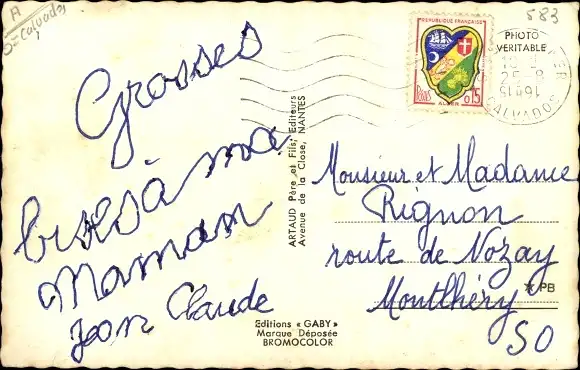 A
Calvados
583
Grosses
bises à ma
Maman
Jean Claude
ARTAUD Père et Fils, Editeurs
Avenue de la Close, NANTES
REPUBLIQUE FRANÇAISE
POSTES
0,15
ALGER
PHOTO
VERITABLE
CALVADOS
Monsieur et Madame
Rignon
route de Nozay
Montlhéry
PB
SO
Editions « GABY »
Marque Déposée
BROMOCOLOR